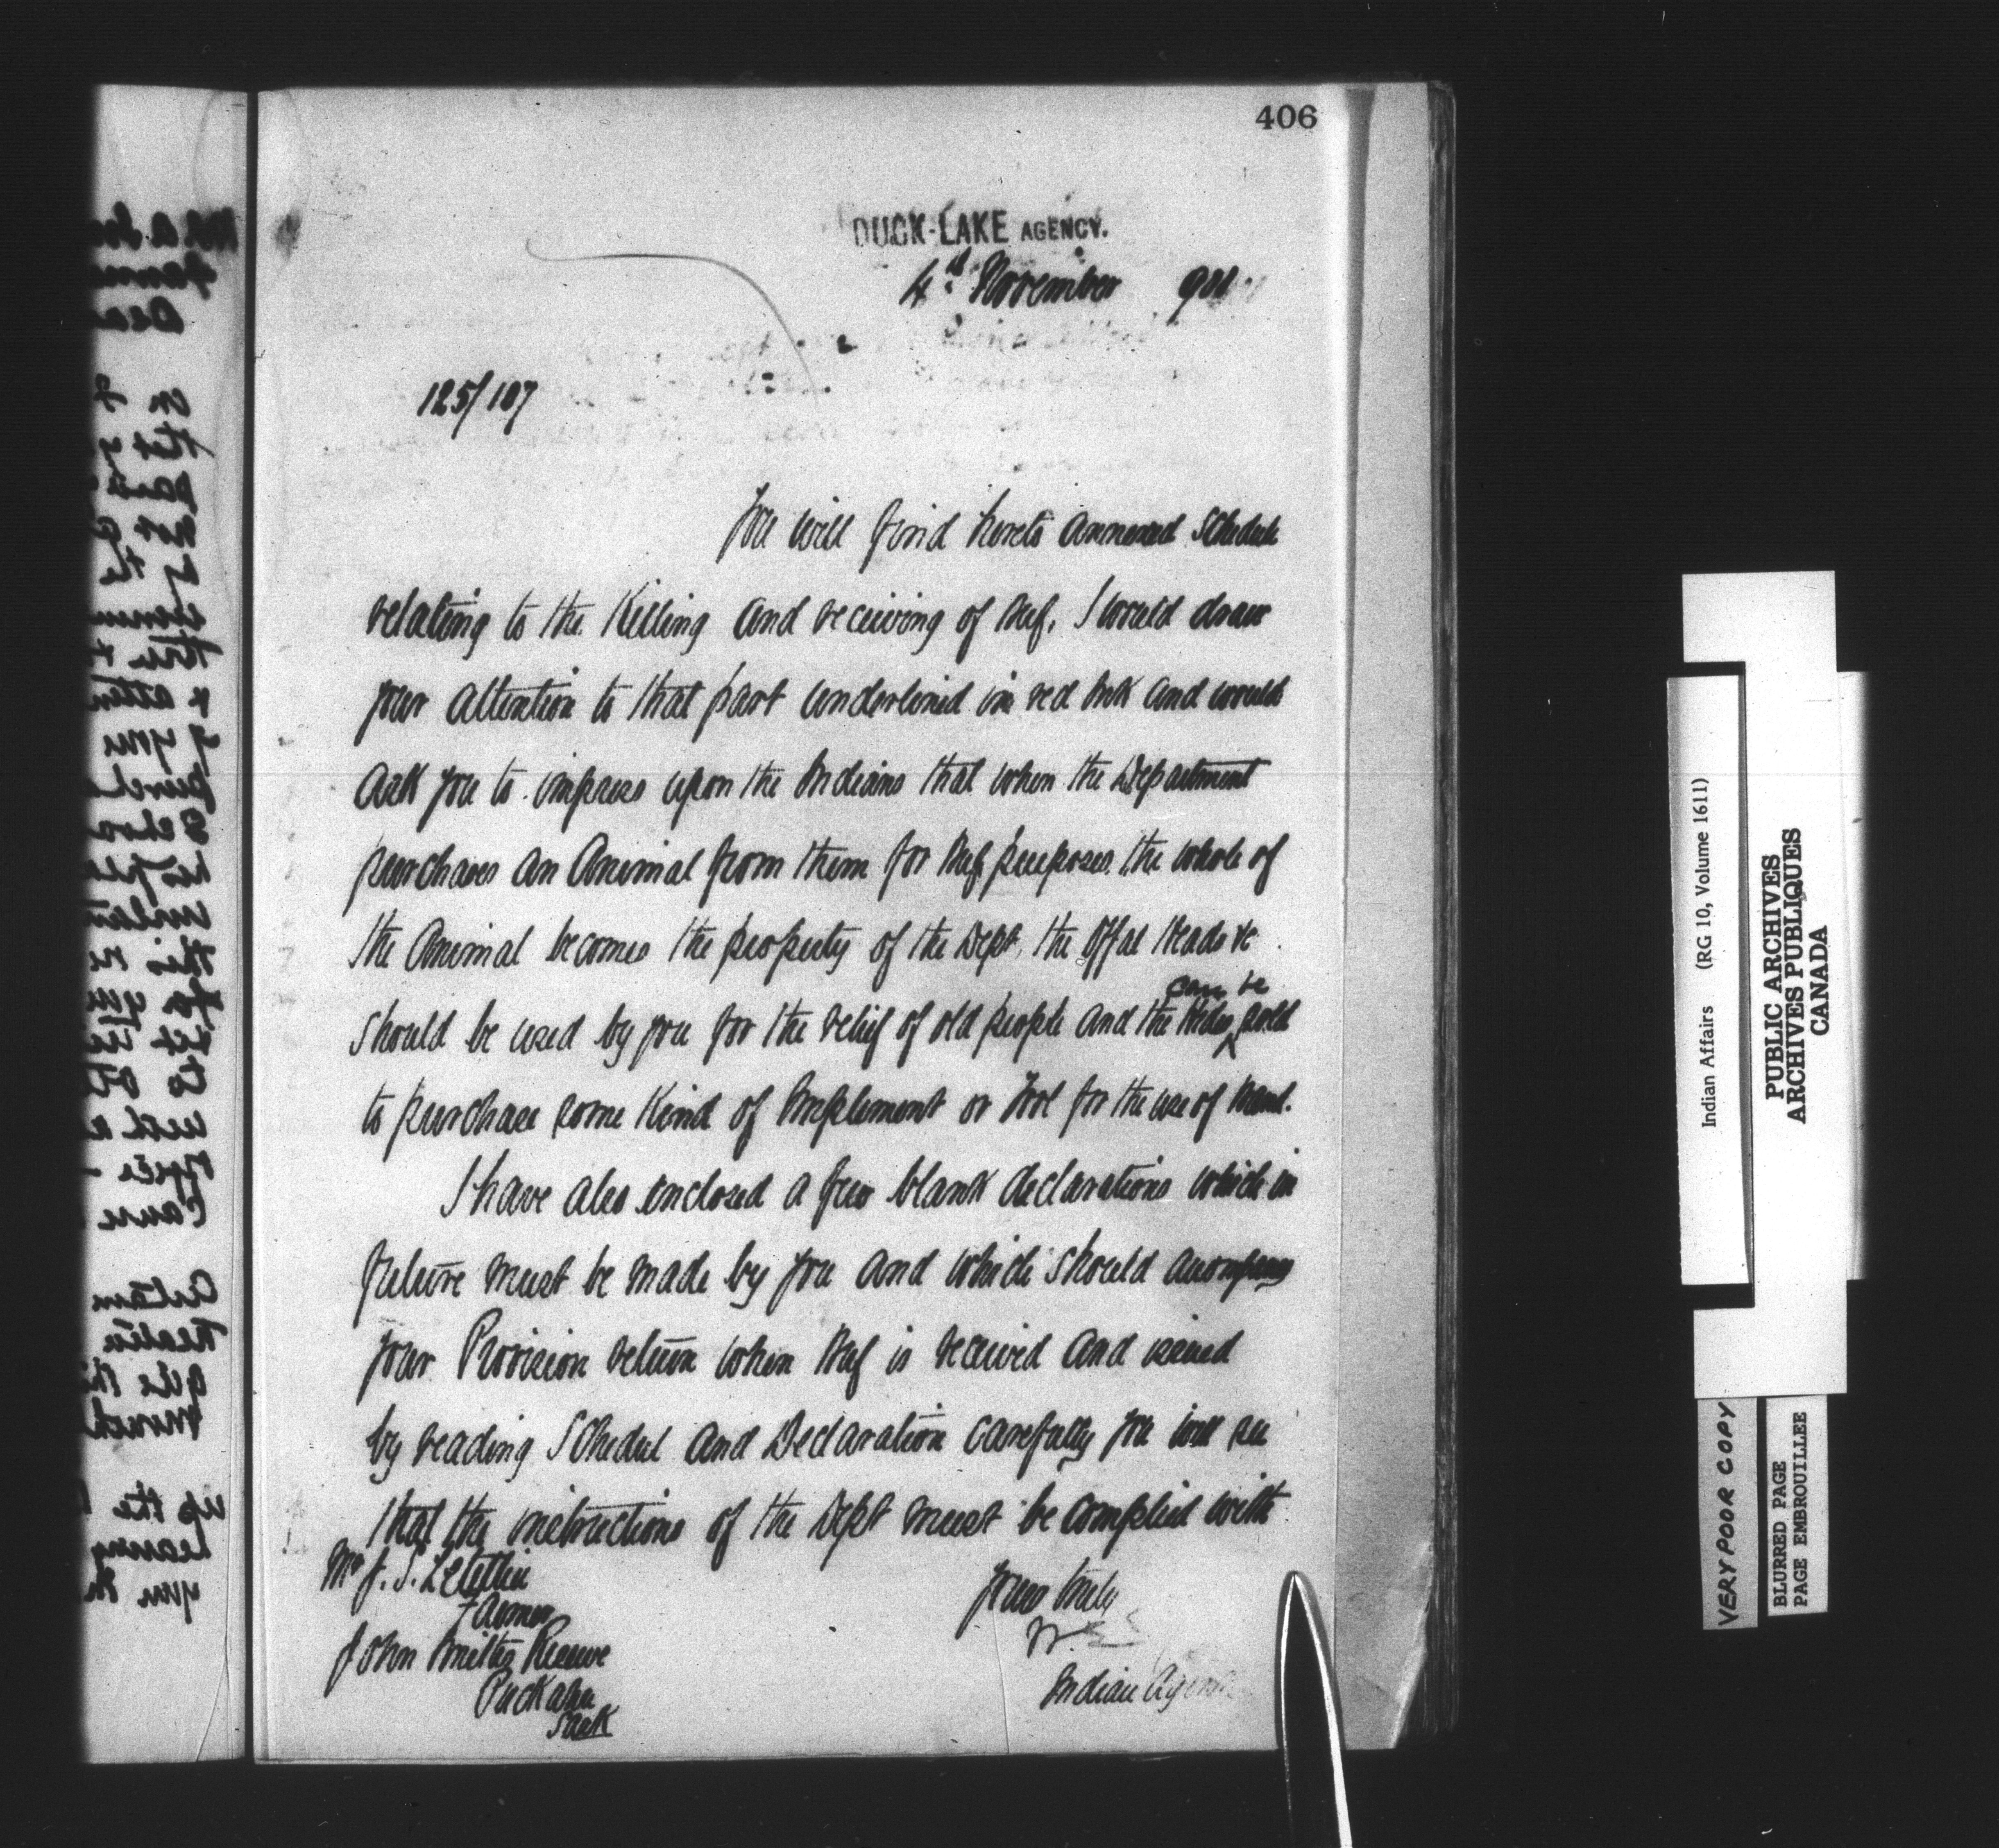 406
DUCK-LAKE AGENCY.
4th November 901
125/187
You will find hereto annexed Schedule
relating to the Killing and receiving of Beef, I would draw
your attention to that part underlined in red Ink and would
ask you to impress upon the Indians that when the Department
purchases an Animal from them for Beef purposes, the whole of
the Animal becomes the property of the Dept, the offal Heads &c
should be used by you for the relief of old people and the Hides can be sold
to purchase some Kind of Implement or Tool for the use of Band.
I have also enclosed a few blank declarations which in
future must be made by you and which should accompany
your Provision return when Beef is received and issued
by reading Schedul and Declaration carefully you will see
that the instructions of the Dept must be complied with
Mr J. S. Letellier
Farmer
John Smiths Reserve
Puckahn
Sask
Yours truly
W.
Indian Agent
Indian Affairs (RG 10, Volume 1611)
PUBLIC ARCHIVES
ARCHIVES PUBLIQUES
CANADA
VERY POOR COPY
BLURRED PAGE
PAGE EMBROUILLEE